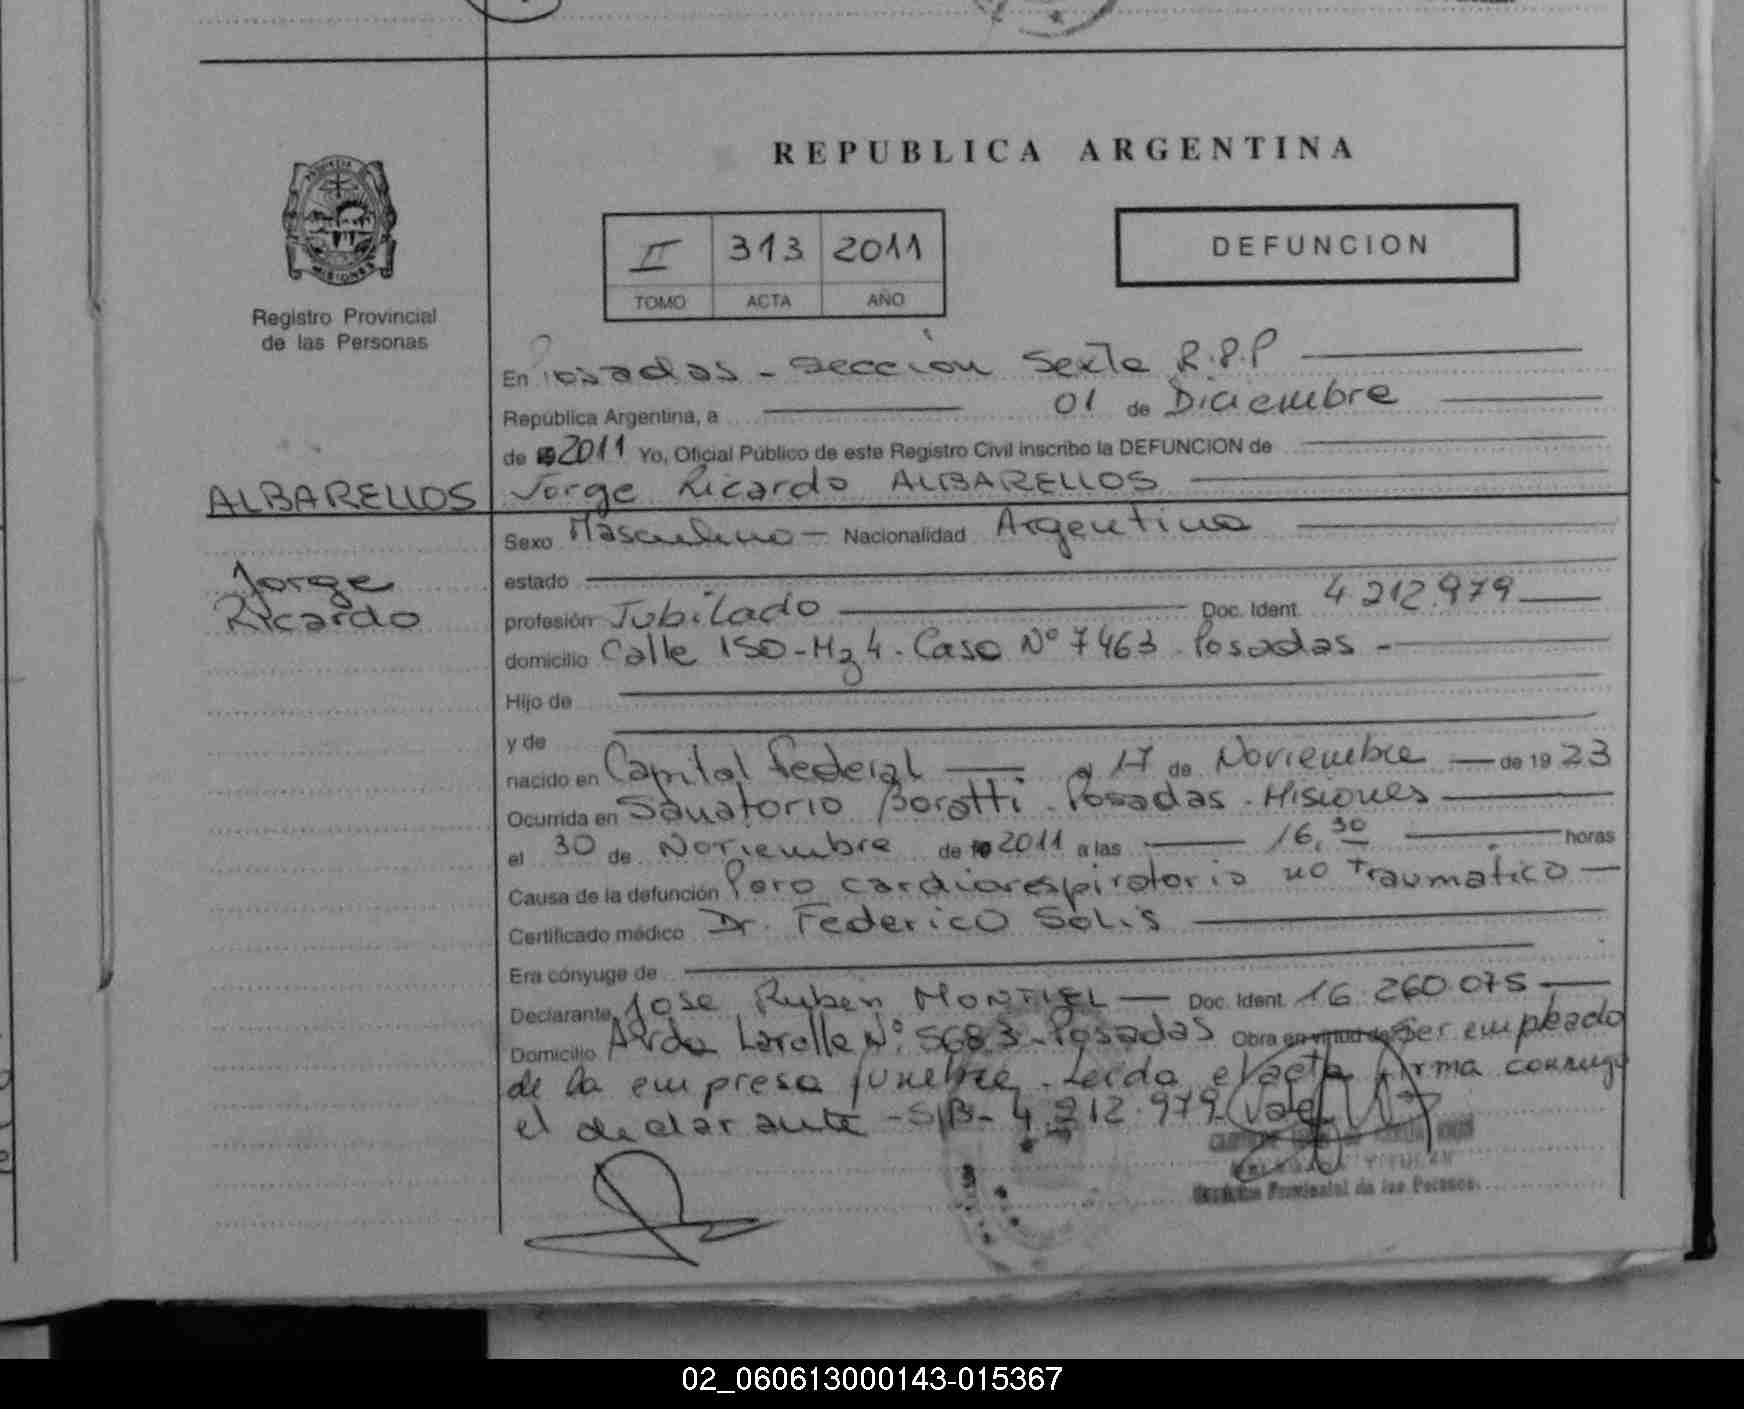 REPUBLICA ARGENTINA
PROVINCIA
MISIONES
Registro Provincial
de las Personas
II 313 2011
TOMO ACTA AÑO
DEFUNCION
En Posadas - sección Sexta R.P.P
República Argentina, a 01 de Diciembre
de 2011 Yo, Oficial Público de este Registro Civil inscribo la DEFUNCION de
ALBARELLOS Jorge Ricardo ALBARELLOS
Jorge
Ricardo
Sexo Masculino - Nacionalidad Argentina
estado
profesión Jubilado Doc. Ident. 4.212.979
domicilio Calle 150 - Mz 4 - Casa Nº 7463 - Posadas -
Hijo de
y de
nacido en Capital Federal el 17 de Noviembre de 19 23
Ocurrida en Sanatorio Boratti - Posadas - Misiones
el 30 de Noviembre de 2011 a las 16,30 horas
Causa de la defunción Paro cardiorespiratorio no traumático
Certificado médico Dr. Federico Solis
Era cónyuge de
Declarante José Ruben MONTIEL Doc. Ident. 16.260.075
Domicilio Avda Lavalle Nº 5683 - Posadas Obra en virtud de ser empleado
de la empresa funebre - Leída el acta firma conmigo
el declarante - S/B - 4.212.979 Vale
Provincial de las Personas
02_060613000143-015367